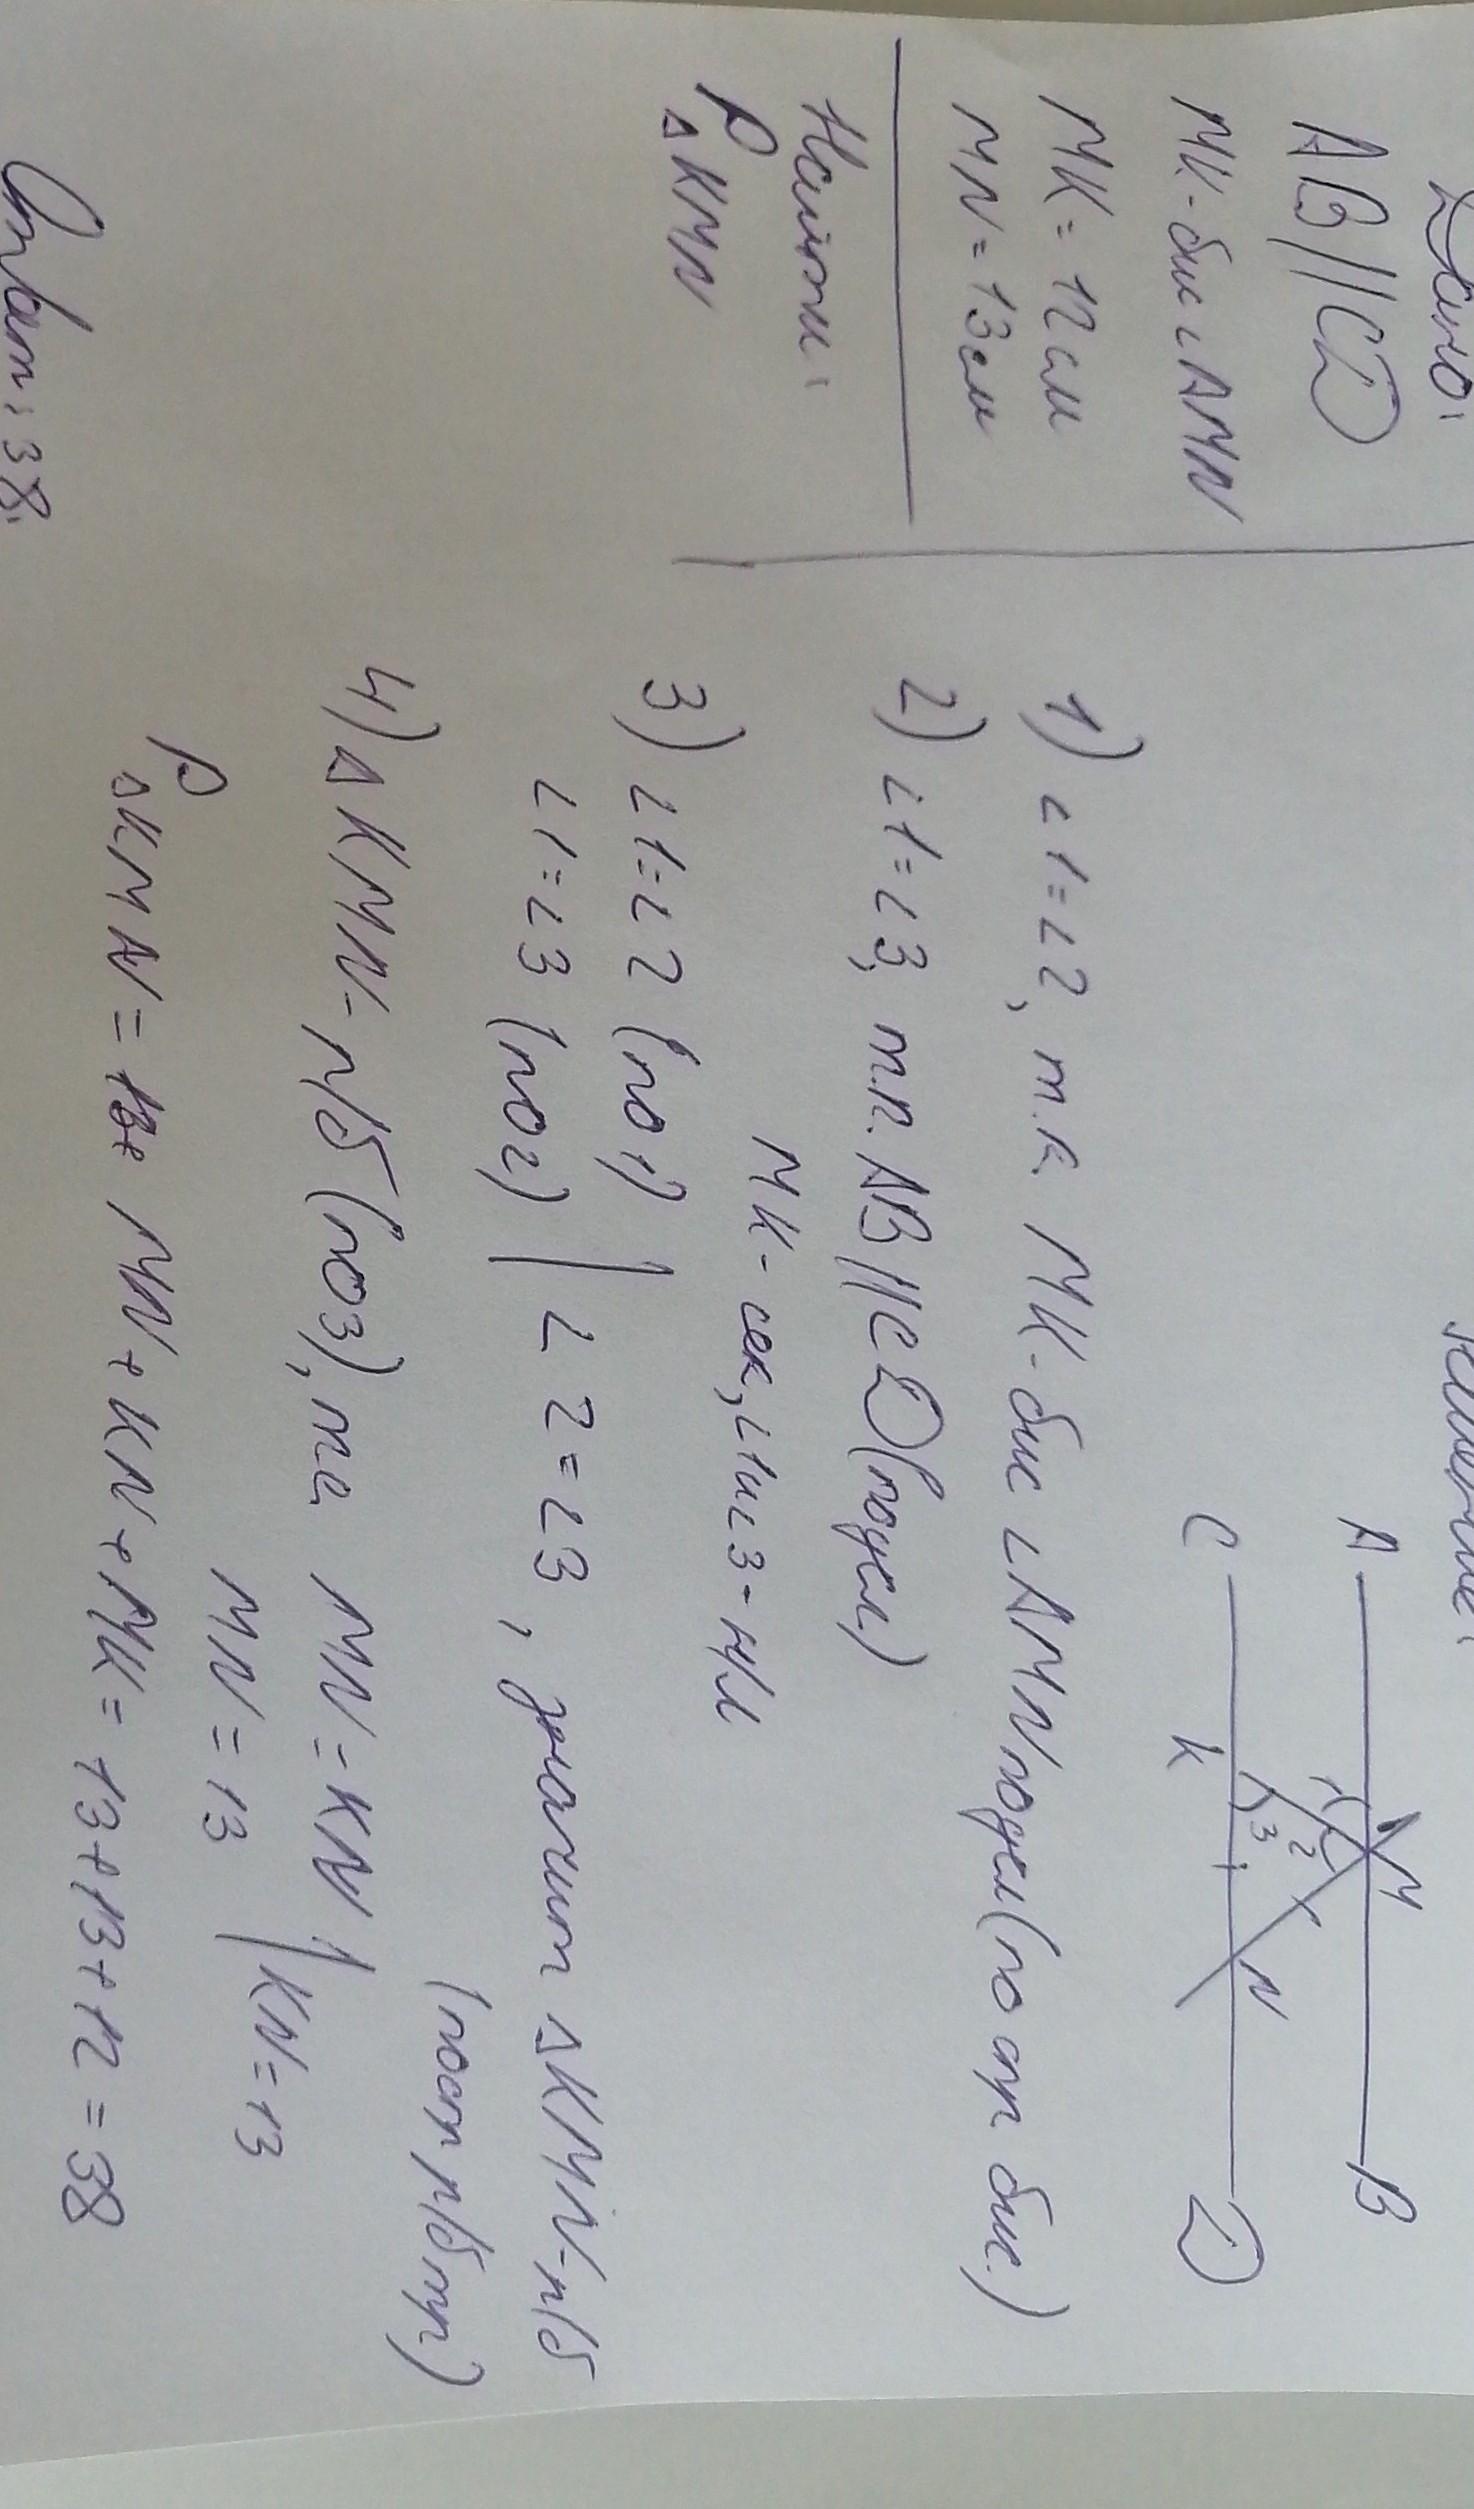 Дано:
AB||CD
MK-бис ∠AMN
MK=12 см
MN=13 см
Найти:
P△KMN
Решение:
A M B
1 2
3
C K N D
1) ∠1=∠2, т.к. MK-бис ∠AMN по усл (по опр бис.)
2) ∠1=∠3, т.к. AB||CD (по усл)
MK- сек, ∠1 и ∠3- н/л
3) ∠1=∠2 (по 1)
∠1=∠3 (по 2) | ∠2=∠3, значит △KMN-р/б
(по сп р/б тр)
4) △KMN- р/б (по 3), то MN=KN
MN=13 | KN=13
P△KMN= MN+KN+MK=13+13+12=38
Ответ: 38.